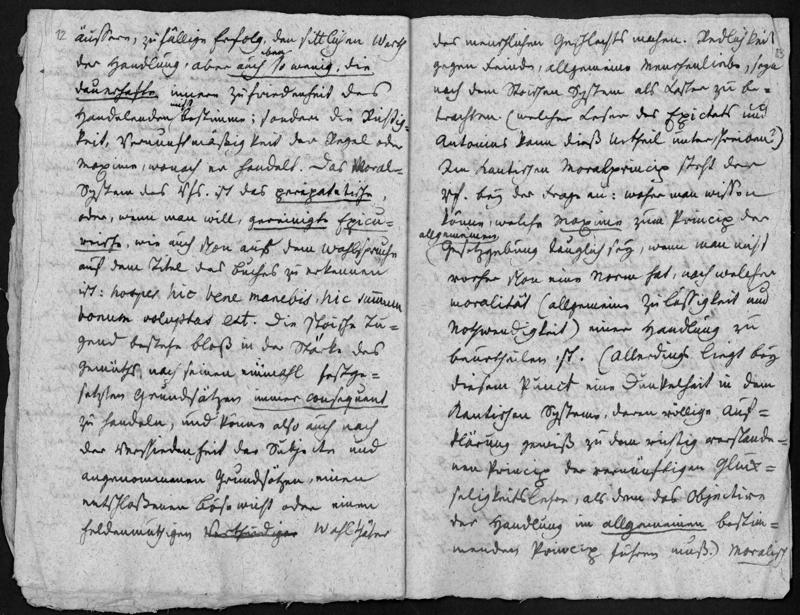 12
äussere, zufällige Erfolg, den sittlichen Werth
der Handlung, aber auch eben so wenig, die
dauerhafte innere Zufriedenheit des
Handelnden muß bestimme; sondern die Richtig-
keit, Vernunftmäßigkeit der Regel oder
Maxime, wonach er handelt. Das Moral-
System des Vfs. ist das peripatetische,
oder, wenn man will, gereinigte Epicu-
reische, wie auch schon aus dem Wahlspruche
auf dem Titel des Buches zu erkennen
ist: hospes hic bene manebis, hic summum
bonum voluptas est. Die stoische Tu-
gend bestehe bloß in der Stärke des
Gemüths, nach seinen einmahl festge-
setzten Grundsätzen immer consequent
zu handeln, und könne also auch nach
der Verschiedenheit des Subjekts und
angenommenen Grundsätzen, einen
entschloßenen Bösewicht oder einen
heldenmüthigen Wohlthäter
13
des menschlichen Geschlechts machen. Redlichkeit
gegen Feinde, allgemeine Menschenliebe, seye
nach dem Stoischen System als Laster zu be-
trachten (welcher Leser des Epictets und
Antonins kann dieß Urtheil unterschreiben?)
Am Kantischen Moralprincip steht der
Vf. bey der Frage an: woher man wissen
könne, welche Maxime zum Princip der
allgemeinen
Gesetzgebung tauglich sey, wenn man nicht
vorher schon eine Norm hat, nach welcher
Moralität (allgemeine Zulässigkeit und
Nothwendigkeit) einer Handlung zu
beurtheilen ist. (Allerdings liegt bey
diesem Punct eine Dunkelheit in dem
Kantischen Systeme, deren völlige Auf-
klärung gewiß zu dem richtig verstande-
nen Princip der vernünftigen Glück-
seligkeitslehre, als dem das Objective
der Handlung im allgemeinen bestim-
menden Princip führen muß.) Moralisch